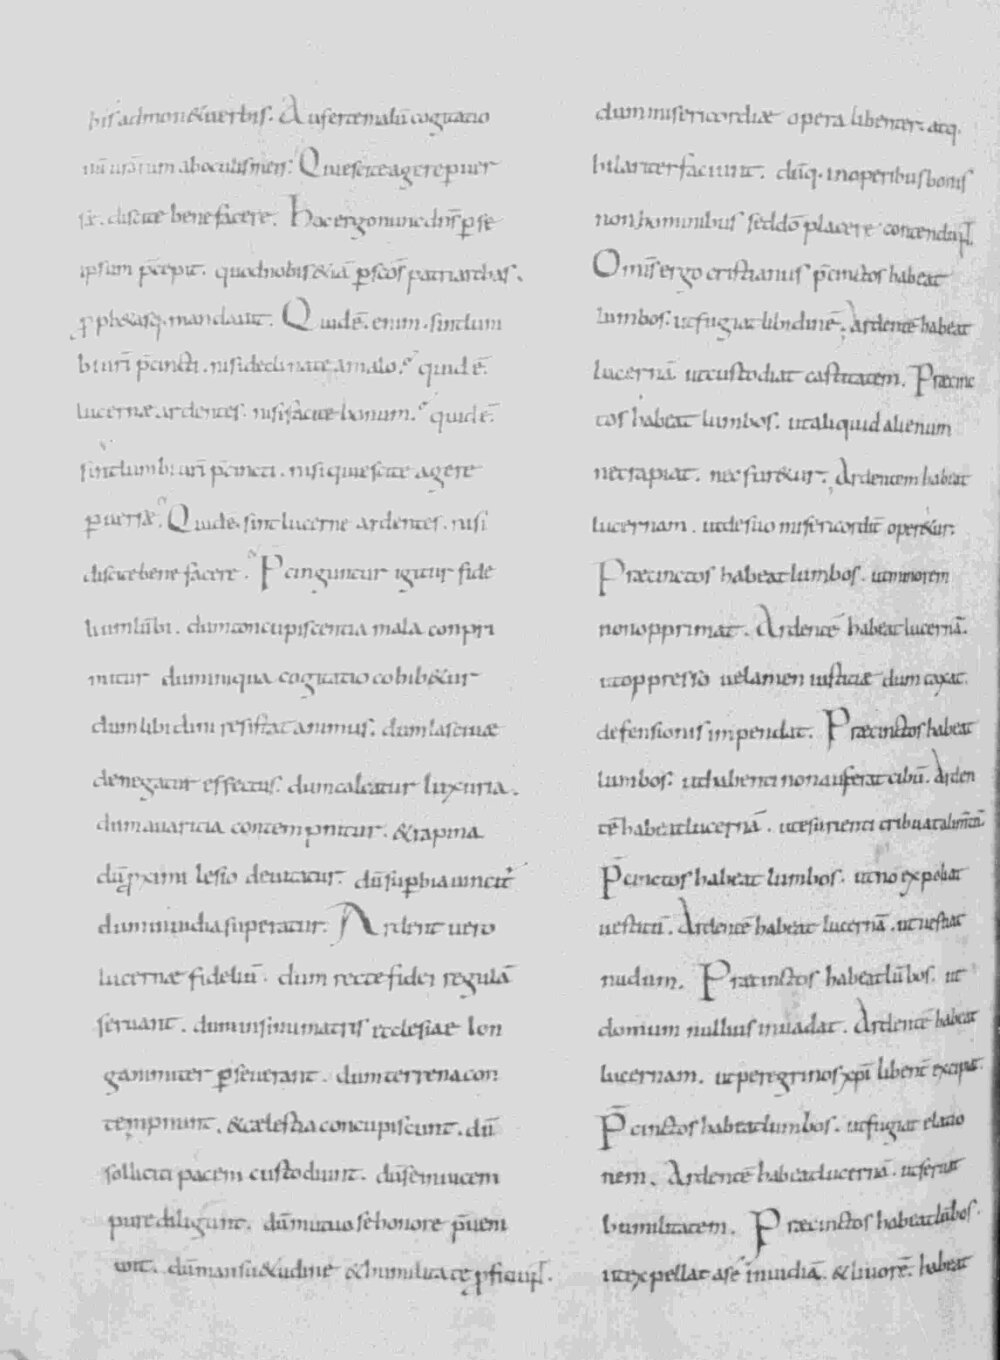 bis admon&uerbis. Auferte malū cogitatio
nū urārum ab oculis meis. Quiescite agere peruer
sæ. discite bene facere. Hoc ergo nunc dn̄s p̱ se
ipsum p̄cepit. quod nobis &iā p̱ scōs patriarchas.
ꝓph&asq. mandauit. Quid ē. enim. sint lum
bi urī p̄cincti. nisi declinate a malo. quid ē.
lucernæ ardentes. nisi facite bonum. quid ē.
sint lumbi urī p̄cincti. nisi quiescite agere
p̱uersæ. Quid ē. sint lucerne ardentes. nisi
discite bene facere. P̄cinguntur igitur fide
lium lūbi. dum concupiscentia mala conpri
mitur dum iniqua cogitatio cohib&ur
dum libidini resistat animus. dum lasciuiæ
denegatur effectus. dum calcatur luxuria.
dum auaritia contempnitur. & rapina
dū ꝓximi lesio deuitatur. dū sup̱bia uincit᷑
dum inuidia superatur. Ardent uero
lucernæ fideliū. dum recte fidei regulā
seruant. dum in sinu matris ecclesiae lon
ganimiter p̱seuerant. dum terrena con
tempnunt. & cælestia concupiscunt. dū
solliciti pacem custodiunt. dū se inuicem
pure diligunt. dū mutuo se honore p̄ueni
unt. dū mansu&udine & humilitate ꝓficiunt.
dum misericordiæ opera libenter. atq.
hilariter faciunt. dūq. in operibus bonis
non hominibus sed dō placere contendunt.
Omīs ergo cristianus p̄cinctos habeat
lumbos. ut fugiat libidinē. Ardentē habeat
lucernā ut custodiat castitatem. Præcinc
tos habeat lumbos. ut aliquid alienum
nec rapiat. nec fur&ur. Ardentem habeat
lucernam. ut de suo misericordit̄ oper&ur.
Præcinctos habeat lumbos. ut minorem
non opprimat. Ardentē habeat lucernā.
ut oppresso uelamen iustitiæ dum taxat.
defensionis impendat. Præcinctos habeat
lumbos. ut habenti non auferat cibū. Arden
tē habeat lucernā. ut esurienti tribuat alim̄tū
P̄cinctos habeat lumbos. ut nō expoliat
uestitū. Ardentē habeat lucernā. ut uestiat
nudum. Præcinctos habeat lūbos. ut
domum nullius inuadat. Ardentē habeat
lucernam. ut peregrinos xp̄i libent̄ excipiat.
P̄cinctos habeat lumbos. ut fugiat elatio
nem. Ardentē habeat lucernā. ut seruat
humilitatem. Præcinctos habeat lūbos.
ut expellat a se inuidiā. & liuorē. habeat